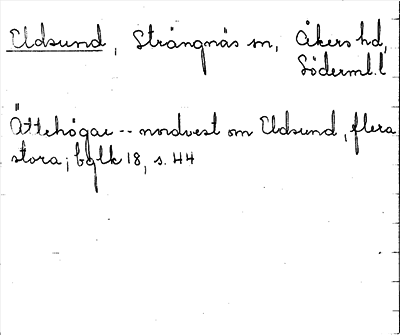 Eldsund, Strängnäs sn, Åkers hd,
Söderml. l
Ättehögar -- nordvest om Eldsund, flera
stora; bqlk 18, s. 44